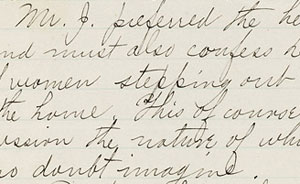 Mr. J. preferred the he
nd must also confess a
f women stepping out
the home. This of course
ussion the nature of whi
no doubt imagine.